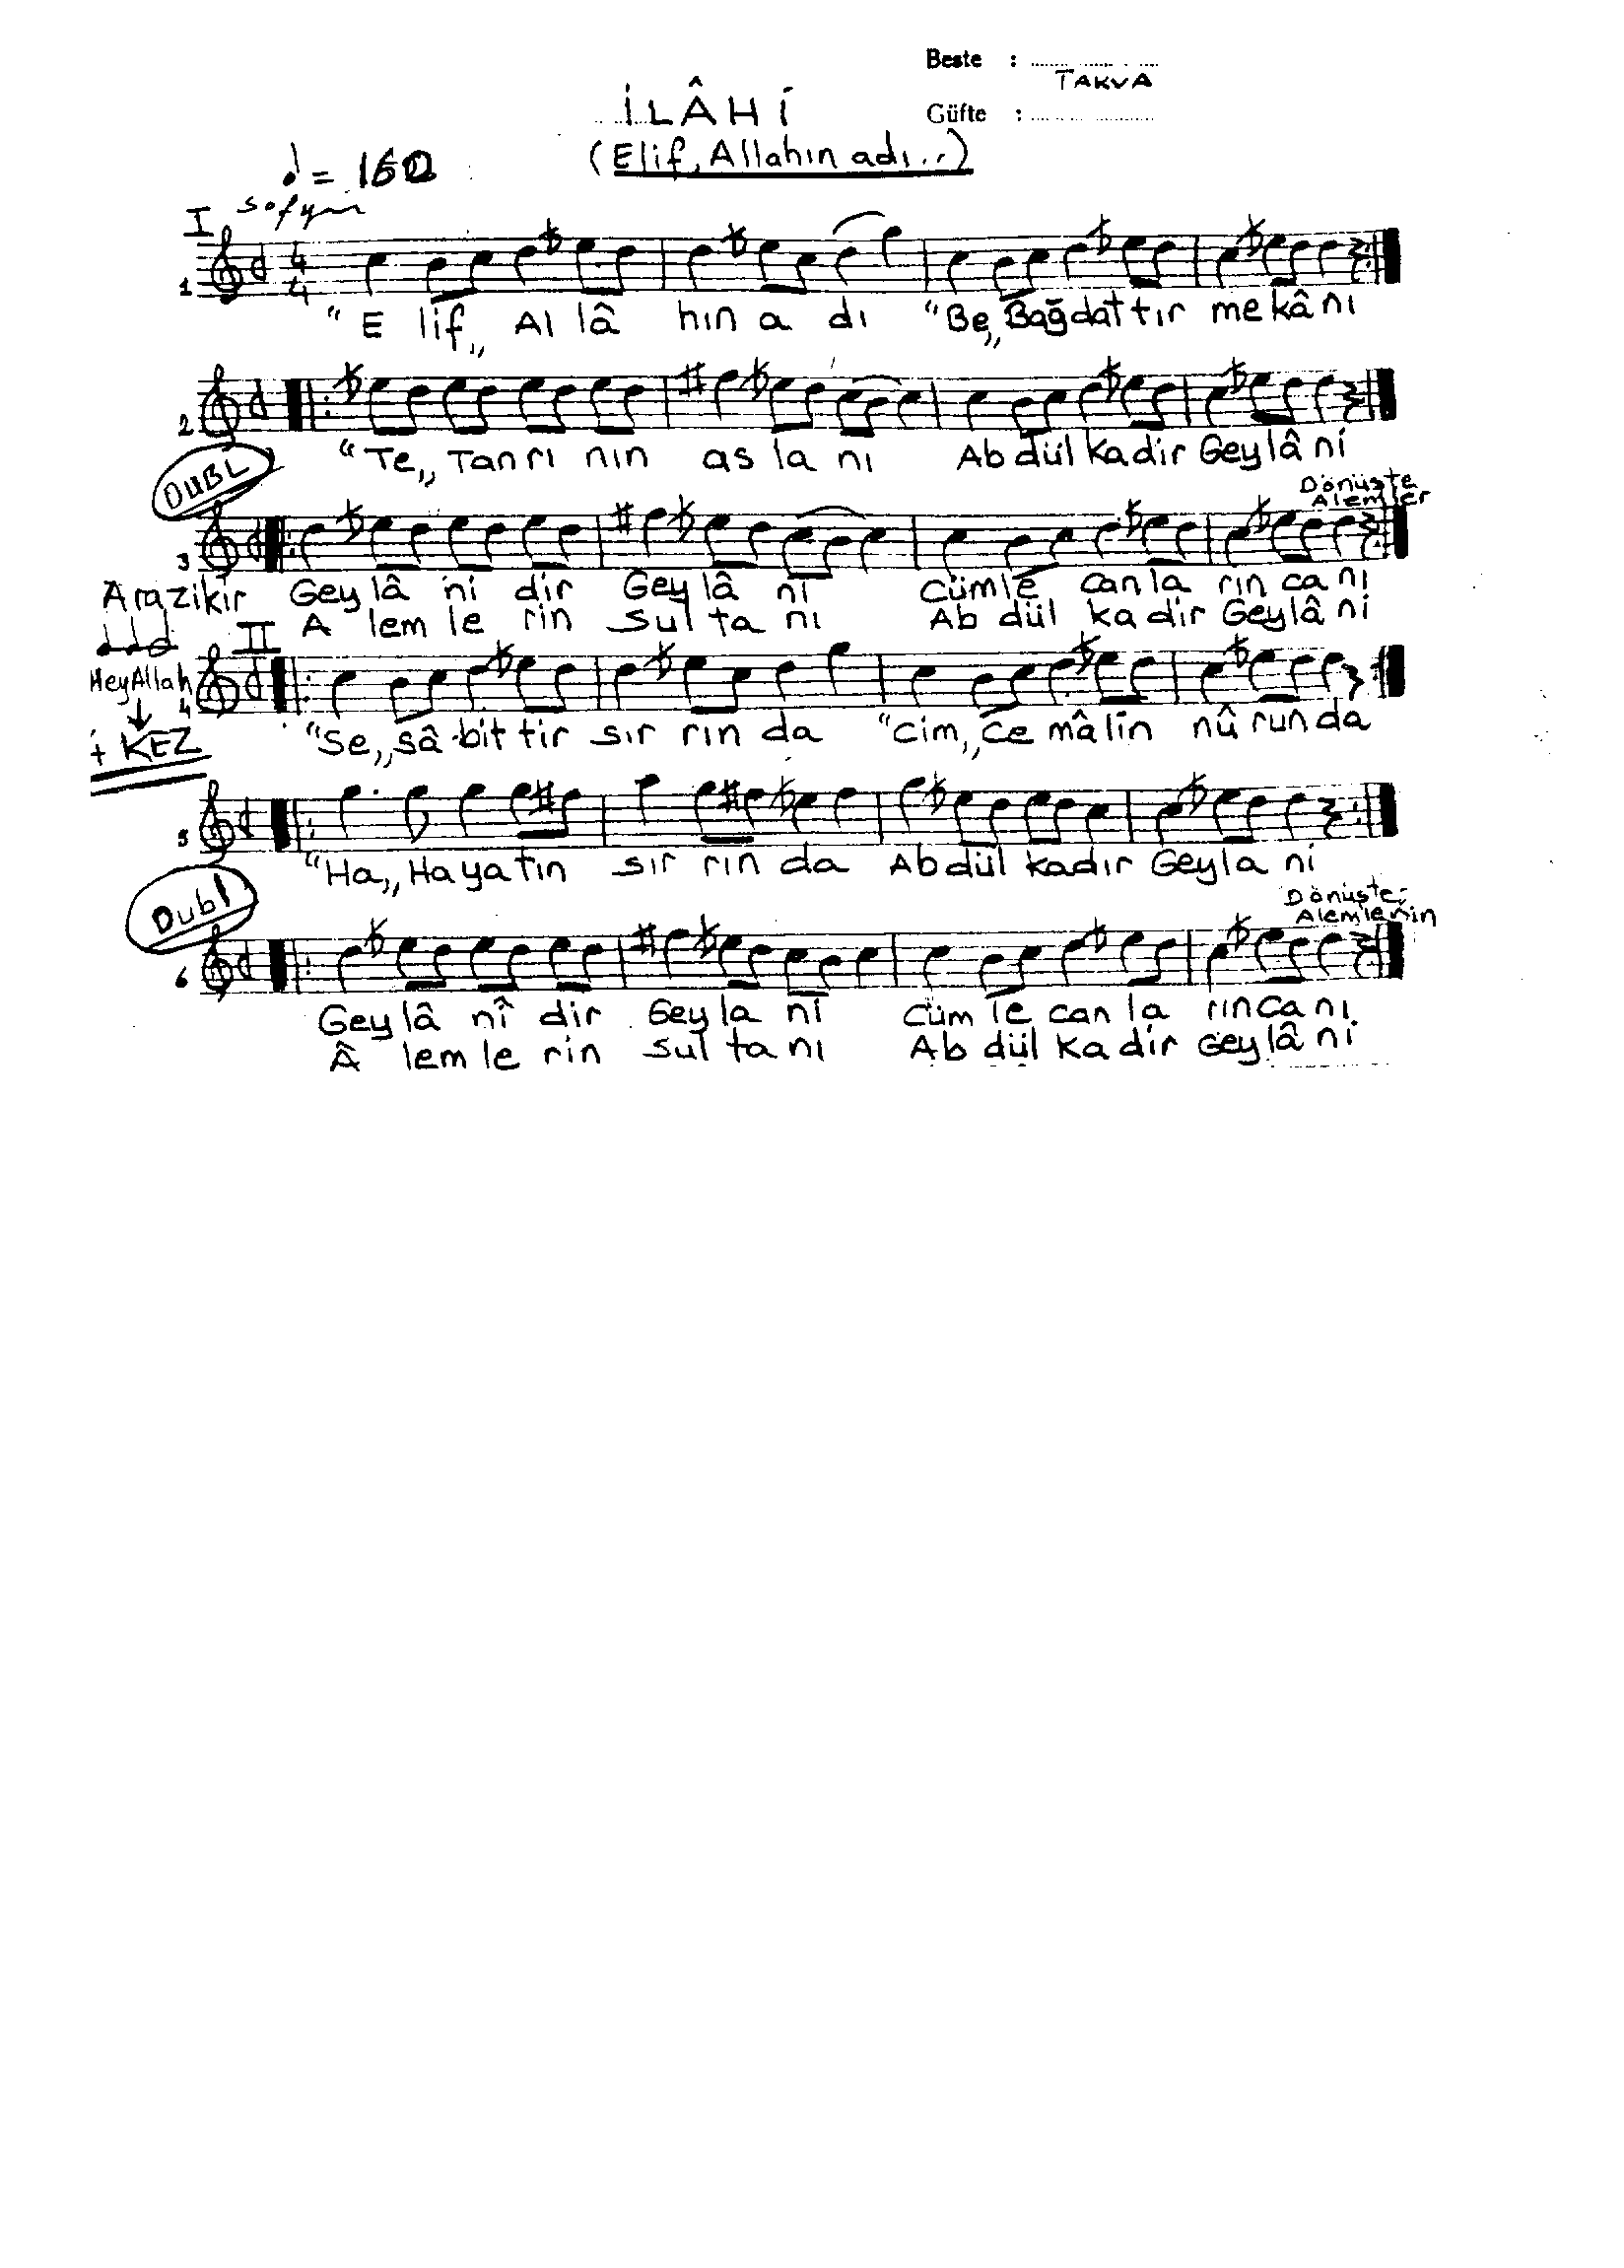 Beste : 
TAKVA
İLÂHİ
Güfte : 
(Elif, Allahın adı..)
sofyan
I
4
4
1
"E lif,, Al lâ hın a dı "Be,, Bağdattır mekânı
2
"Te,, Tanrı nın as la nı Abdülkadir Geylâni
DUBL
Dönüşte
Alemler
3
Arazikir Geylâ ni dir Geylâ ni Cümle canla rın canı
A lem le rin sul ta nı Ab dül kadir Geylâni
II
HeyAllah
4
"Se,, sâ bit tir sır rın da "Cim,, Ce mâlin nû runda
KEZ
5
"Ha,, Hayatın sır rın da Abdül kadır Geyla ni
Dubl
Dönüşte
Alemlerin
6
Geylâ nî dir Geyla ni Cüm le can la rıncanı
 lem le rin sul ta nı Ab dül ka dir Geylâni